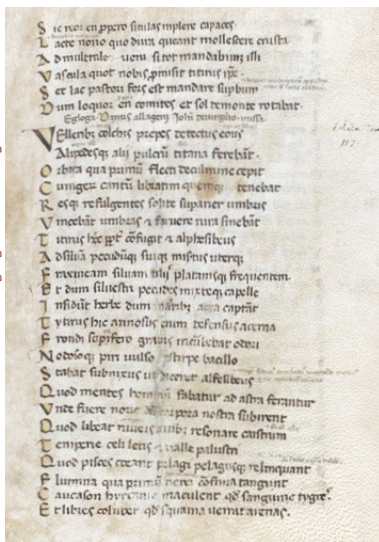 Sic reor en ppero situlas implere capaces
Lacte nouo quo dura queant mollescere crusta
Ad mulctrale ueni si tot mandabimus illi
Vascula quot nobis pmisit titirus ipe.
Set lac pastori fors est mandare supbum
Dum loquor en comites et sol de monte rotabat.
Egloga Dantis allagerij Johi de uirgilio missa
Vellerib; colchis prepes detectus eous
Alipedesq; alij pulcrum titana ferebāt.
Orbita qua primū flecti de culmine cepit
Currigerū cantū libratim quemq; tenebat
Resq; refulgentes solite supaner umbris
Vincebāt umbras et feruere rura sinebāt
Titirus hec ppt cōfugit et alphesibeus
Ad siluā pecudūq; suiq; misertus uterq;
Fraxineam siluam tilijs platanisq; frequentem.
Et dum siluestri pecudes mixteq; capelle
Insidūt herbe dum naribus aera captāt
Tytirus hic annosus enim defensus acerna
Frondi soporifero grauis incūbebat odori
Nodosoq; piri uulso de stirpe bacillo
Stabat subnixus ut diceret alfesibeus
Quod mentes hominū fabatur ad astra ferantur
Vnde fuere noue cum corpora nostra subirent
Quod libeat niueis auib; resonare caistrum
Temperie celi letis et ualle palustri
Quod pisces coeant pelagi pelagusq; relinquant
Flumina qua primū nerei cōfinia tangunt
Caucason hyrcane maculent qd sanguine tygres.
Et libies coluber qd squama uerrat arenas.